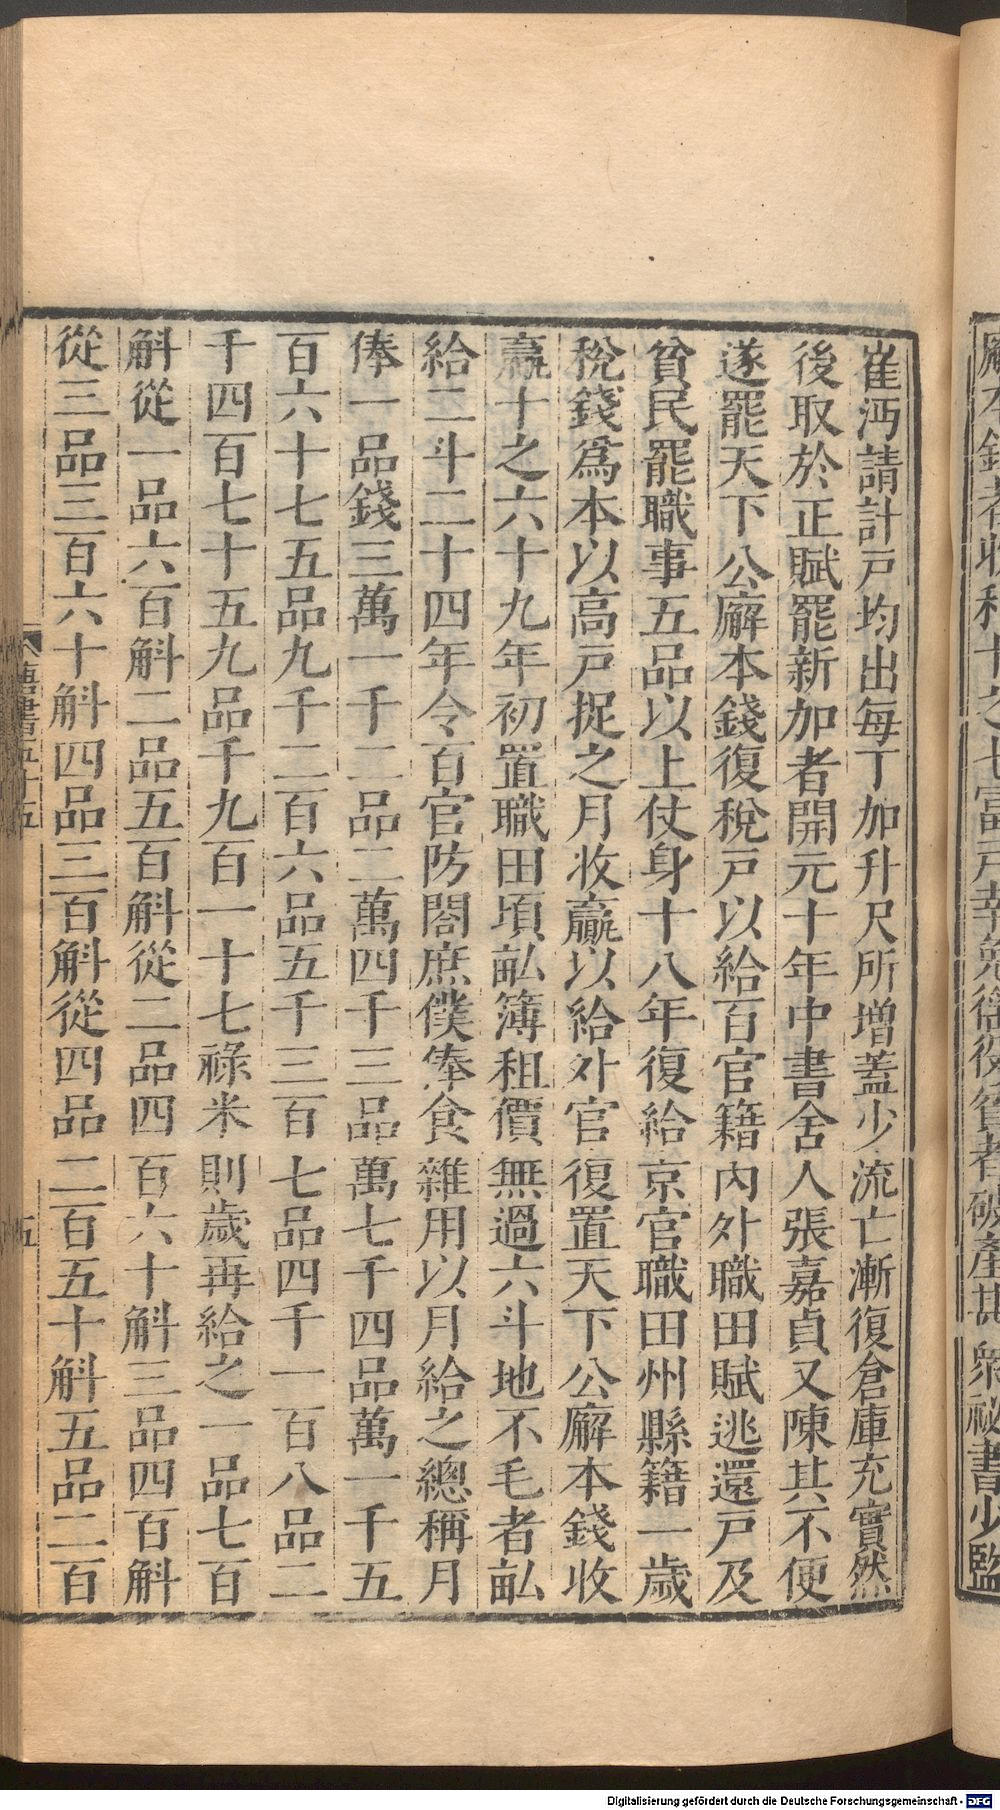 廨本錢者收利十之七富戶幸免徭役貧者破產甚衆祕書少監
崔沔請計戸均出每丁加升尺所增蓋少流亡漸復倉庫充實然
後取於正賦罷新加者開元十年中書舍人張嘉貞又陳其不便
遂罷天下公廨本錢復稅戸以給百官籍內外職田賦逃還戸及
貧民罷職事五品以上仗身十八年復給京官職田州縣籍一歲
稅錢爲本以高戸捉之月收贏以給外官復置天下公廨本錢收
贏十之六十九年初置職田頃畝簿租價無過六斗地不毛者畝
給二斗二十四年令百官防閤庶僕俸食雜用以月給之總稱月
俸一品錢三萬一千二品二萬四千三品萬七千四品萬一千五
百六十七五品九千二百六品五千三百七品四千一百八品二
千四百七十五九品千九百一十七祿米則歲再給之一品七百
斛從一品六百斛二品五百斛從二品四百六十斛三品四百斛
從三品三百六十斛四品三百斛從四品二百五十斛五品二百
唐書五十五
五
Digitalisierung gefördert durch die Deutsche Forschungsgemeinschaft - DFG